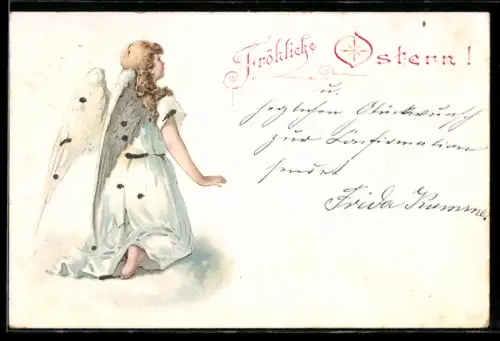 Fröhliche Ostern!
u.
herzlichen Glückwunsch
zur Confirmation
sendet
Frida